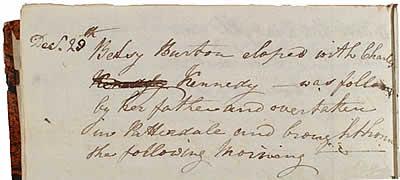 Decr. 28th Betsy Burton eloped with Charles
Kennedy Kennedy — was follow
by her father and overtaken
in Patterdale and brought home
the following morning